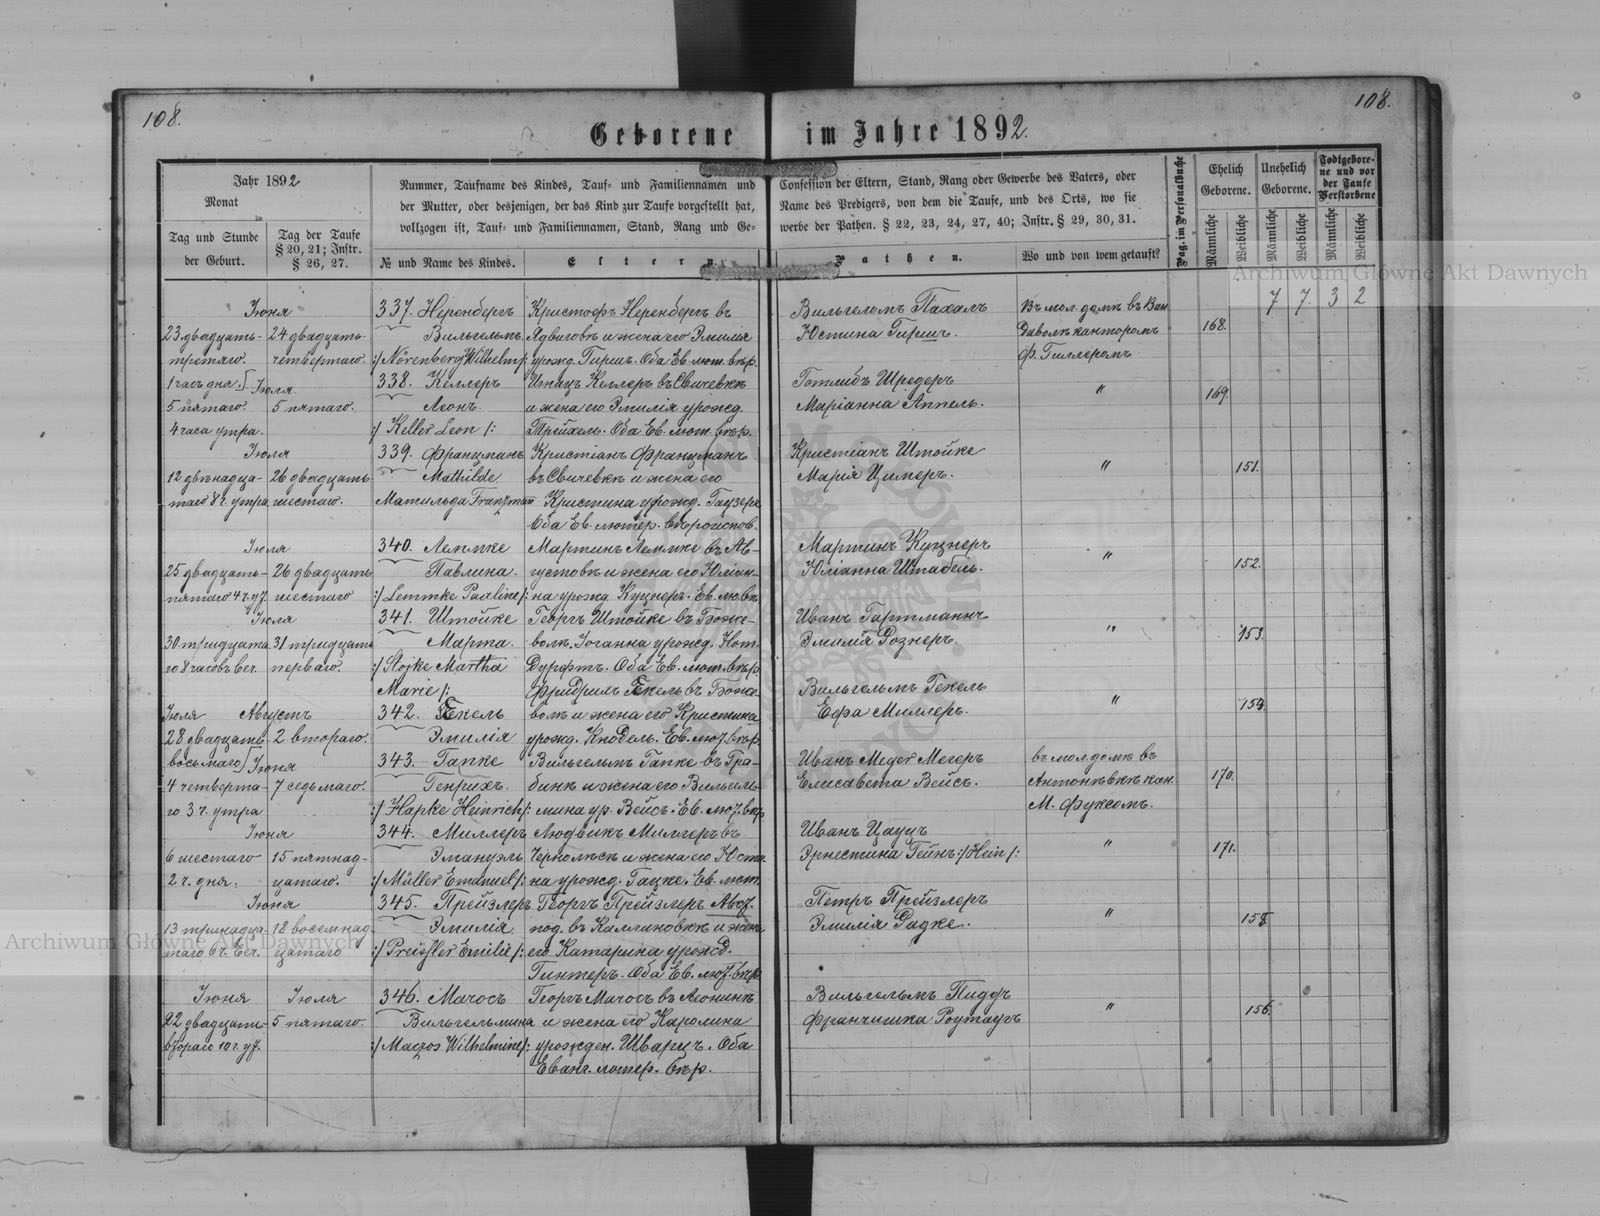 108.
108.
Geborene im Jahre 1892.
Jahr 1892
Monat
Tag und Stunde der Geburt.
Tag der Taufe § 20, 21; Instr. § 26, 27.
Nummer, Taufname des Kindes, Tauf- und Familiennamen und
der Mutter, oder desjenigen, der das Kind zur Taufe vorgestellt hat,
vollzogen ist, Tauf- und Familiennamen, Stand, Rang und Ge-
№ und Name des Kindes.
Eltern.
Confession der Eltern, Stand, Rang oder Gewerbe des Vaters, oder
Name des Predigers, von dem die Taufe, und des Orts, wo sie
werbe der Pathen. § 22, 23, 24, 27, 40; Instr. § 29, 30, 31.
Pathen.
Wo und von wem getauft?
Pag. im Personalbuche
Ehelich Geborene.
Unehelich Geborene.
Todtgeborene und vor der Taufe Verstorbene
Männliche
Weibliche
Männliche
Weibliche
Männliche
Weibliche
7 7. 3 2
Іюня
337. Неренбергъ
Кристофъ Неренбергъ въ
Вильгельмъ Пахалъ
Въ мол. домѣ въ Ван
23 двадцать-
24 двадцать-
Вильгельмъ.
Ядвиговкѣ и жена его Эмилія
Юстина Гиршъ.
Даволѣ канторомъ
168.
третяго.
четвертаго.
:/ Nörenberg Wilhelm /:
урожд. Гиршъ. Оба Ев. лют. вѣр.
Ф. Гиллеромъ.
1 часъ дня.
Іюля.
338. Келлеръ
Игнацъ Келлеръ въ Свичевкѣ
Готлибъ Шредеръ
"
169.
5 пятаго.
5 пятаго.
Леонъ.
и жена его Эмилія урожд.
Маріанна Аппель.
4 часа утра.
:/ Keller Leon /:
Трейхель. Оба Ев. лют. вѣр.
Іюля
339. Францманъ
Кристіанъ Францманъ
Кристіанъ Штойке
"
151.
12 двѣнадца-
26 двадцать
Mathilde
въ Свичевкѣ и жена его
Марія Цимеръ.
таго 8 ч. утра,
шестаго.
Матильда Franzman
Кристина урожд. Гаузеръ
Оба Ев. лютер. вѣроиспов.
Іюля
340. Леммке
Мартинъ Леммке въ Ав-
Мартинъ Куцнеръ
"
152.
25 двадцать-
26 двадцать
Павлина.
густовкѣ и жена его Юліан-
Юліанна Штабель.
пятаго 4 ч. ут.
шестаго
:/ Lemmke Pauline /:
на урожд. Куцнеръ. Ев. лю. вѣ.
Іюля
341. Штойке
Георгъ Штойке въ Боже-
Иванъ Гартманнъ
"
153.
30 тридцата
31 тридцать
Марта.
волѣ, Іоганна урожд. Нот.
Эмилія Рознеръ.
го 8 часовъ веч.
перваго.
:/ Stojke Martha
Дурфтъ. Оба Ев. лют. вѣр.
Marie /:
Фридрихъ Гекель въ Боже
Вильгельмъ Гекель
"
154.
Іюля
Августъ
342. Гекель
волѣ и жена его Кристина
Ефа Миллеръ.
28 двадцать
2 втораго.
Эмилія
урожд. Кнодель. Ев. лют. вѣр.
восьмаго
Іюня
343. Гапке
Вильгельмъ Гапке въ Гра-
Иванъ Медег Мегеръ
въ мол. домѣ въ
4 четверта-
7 седьмаго.
Генрихъ.
бинѣ и жена его Вильгель-
Елисавета Вейсъ.
Антоновкѣ кан.
170.
го 3 ч. утра
:/ Hapke Heinrich /:
мина ур. Вейсъ. Ев. лют. вѣр.
М. Фуксомъ.
Іюня
344. Миллеръ
Людвикъ Миллеръ въ
Иванъ Цауцъ
6 шестаго
15 пятнад-
Эмануэль
Чернолѣсѣ и жена его Юсти
Эрнестина Гейнъ :/ Hein /:
"
171.
2 ч. дня.
цатаго.
:/ Müller Emanuel /:
на урожд. Гацке. Ев. лют.
Іюня
345. Прейзлеръ
Георгъ Прейзлеръ Авст.
Петръ Прейзлеръ
"
155.
13 тринадца-
18 восемнад-
Эмилія
под. въ Калиновкѣ и жена
Эмилія Радке.
таго 6 ч. веч.
цатаго
:/ Preissler Emilie /:
его Катарина урожд.
Гинтеръ. Оба Ев. лют. вѣр.
Іюня
Іюля
346. Мачосъ
Георгъ Мачосъ въ Леонинѣ
Вильгельмъ Пиддъ
22 двадцать
5 пятаго.
Вильгельмина
и жена его Каролина
Францишка Роутаугъ
"
156.
втораго 10 ч. ут.
:/ Maczos Wilhelmine /:
урожден. Шварцъ. Оба
Еванг. лютер. вѣр.
Archiwum Główne Akt Dawnych
Archiwum Główne Akt Dawnych